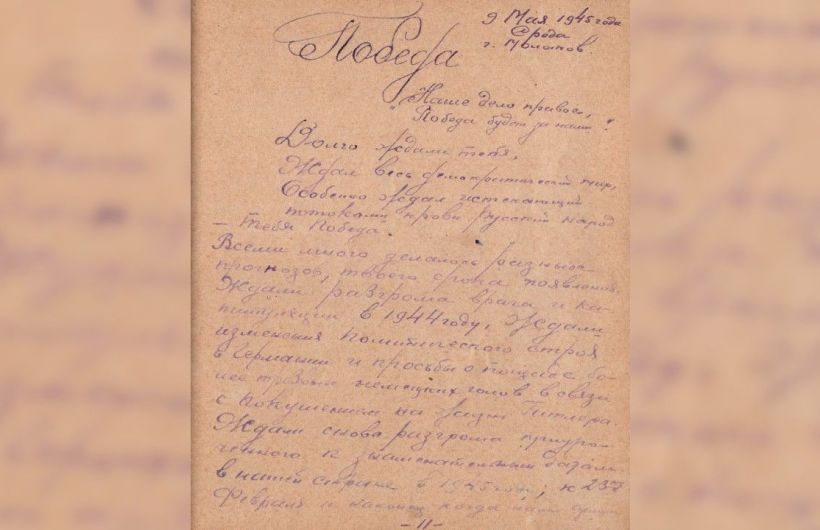 9 Мая 1945 года
Среда
г. Молотов.
Победа
"Наше дело правое,
Победа будет за нами"!
Долго ждали тебя,
Ждал весь демократический мир,
Особенно ждал истекающий
потоками крови русский народ
– тебя Победа.
Всеми много делалось разных
прогнозов, твоего срока появления.
Ждали разгрома врага и ка-
питуляции в 1944 году, Ждали
изменения политического строя
в Германии и просьбы о пощаде бо-
лее трезвых немецких голов в связи
с покушением на жизнь Гитлера.
Ждали снова разгрома приуро-
ченного к знаменательным датам
в нашей стране в 1945 году; к 23й
Февраля и наконец когда наши
- 11 -